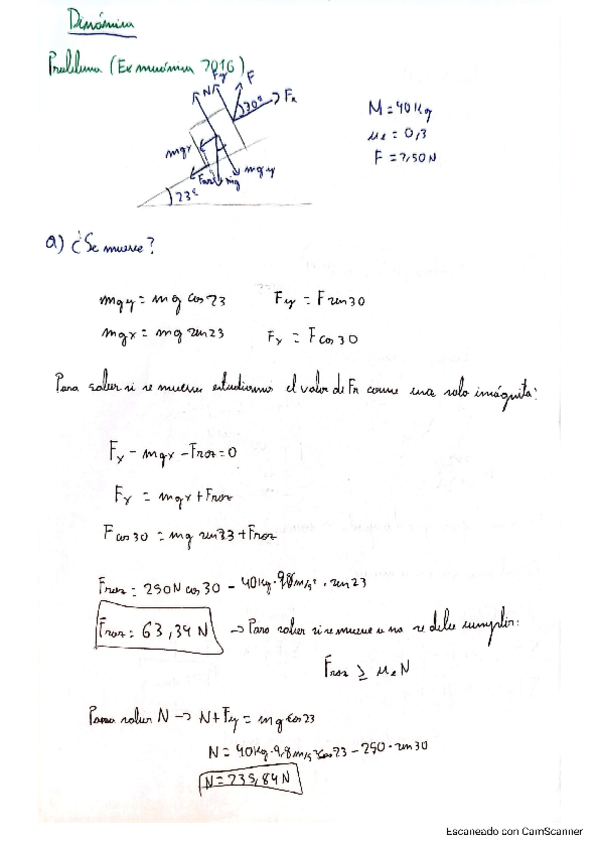 Dinámica
Problema (Ex muónica 2016)
Fy F
N 30° Fx
mgx
Froz mg mgy
23°
M = 40 Kg
μe = 0,3
F = 250 N
a) ¿Se mueve?
mgy = mg cos 23 Fy = F sen 30
mgx = mg sen 23 Fx = F cos 30
Para saber si se mueve estudiamos el valor de FR como una sola incógnita:
Fx - mgx - Froz = 0
Fx = mgx + Froz
F cos 30 = mg sen 23 + Froz
Froz = 250 N cos 30 - 40 Kg · 9,8 m/s² · sen 23
Froz = 63,34 N → Para saber si se mueve o no se debe cumplir:
Froz ≥ μe N
Para saber N → N + Fy = mg cos 23
N = 40 Kg · 9,8 m/s² cos 23 - 250 · sen 30
N = 235,84 N
Escaneado con CamScanner